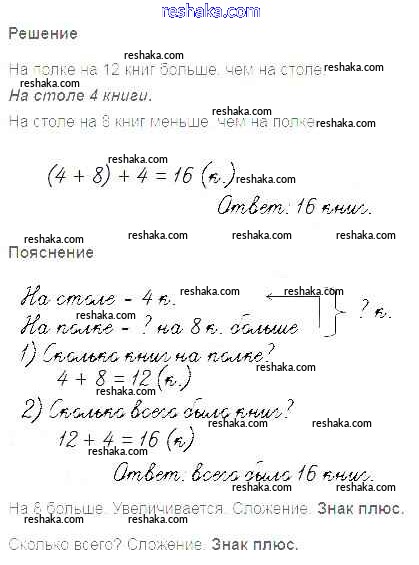 reshaka.com
Решение
reshaka.com
На полке на 12 книг больше, чем на столе.
reshaka.com
На столе 4 книги.
reshaka.com reshaka.com
На столе на 8 книг меньше, чем на полке.
reshaka.com
reshaka.com
(4 + 8) + 4 = 16 (к.)
reshaka.com
Ответ: 16 книг.
reshaka.com reshaka.com reshaka.com reshaka.com
Пояснение
reshaka.com reshaka.com
На столе - 4 к.
reshaka.com
На полке - ? на 8 к. больше
? к.
1) Сколько книг на полке?
reshaka.com reshaka.com
4 + 8 = 12 (к.)
reshaka.com
2) Сколько всего было книг?
reshaka.com
12 + 4 = 16 (к)
reshaka.com reshaka.com
Ответ: всего было 16 книг.
reshaka.com
На 8 больше. Увеличивается. Сложение. Знак плюс.
reshaka.com reshaka.com reshaka.com
Сколько всего? Сложение. Знак плюс.
reshaka.com reshaka.com reshaka.com